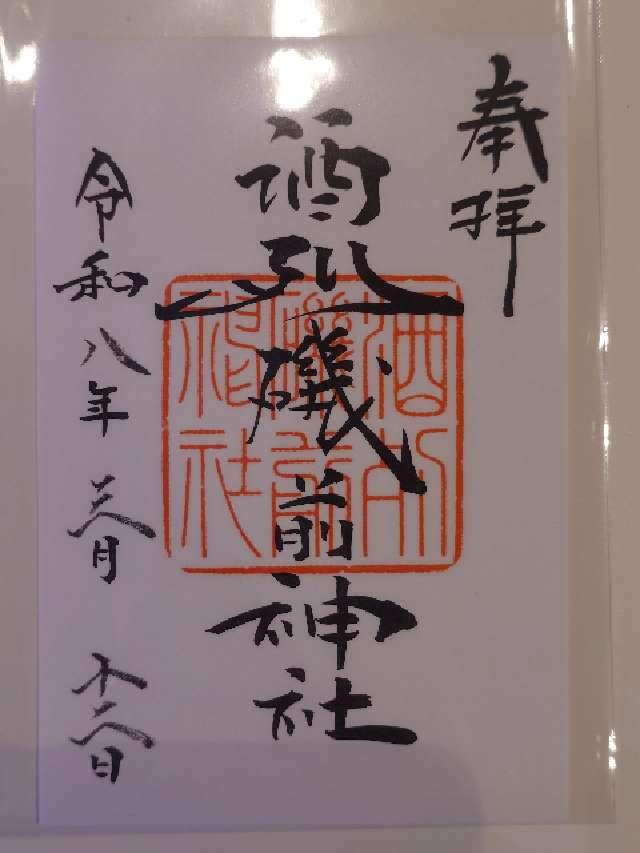 奉拝
酒列磯前神社
酒列
磯前
神社
令和八年三月十二日